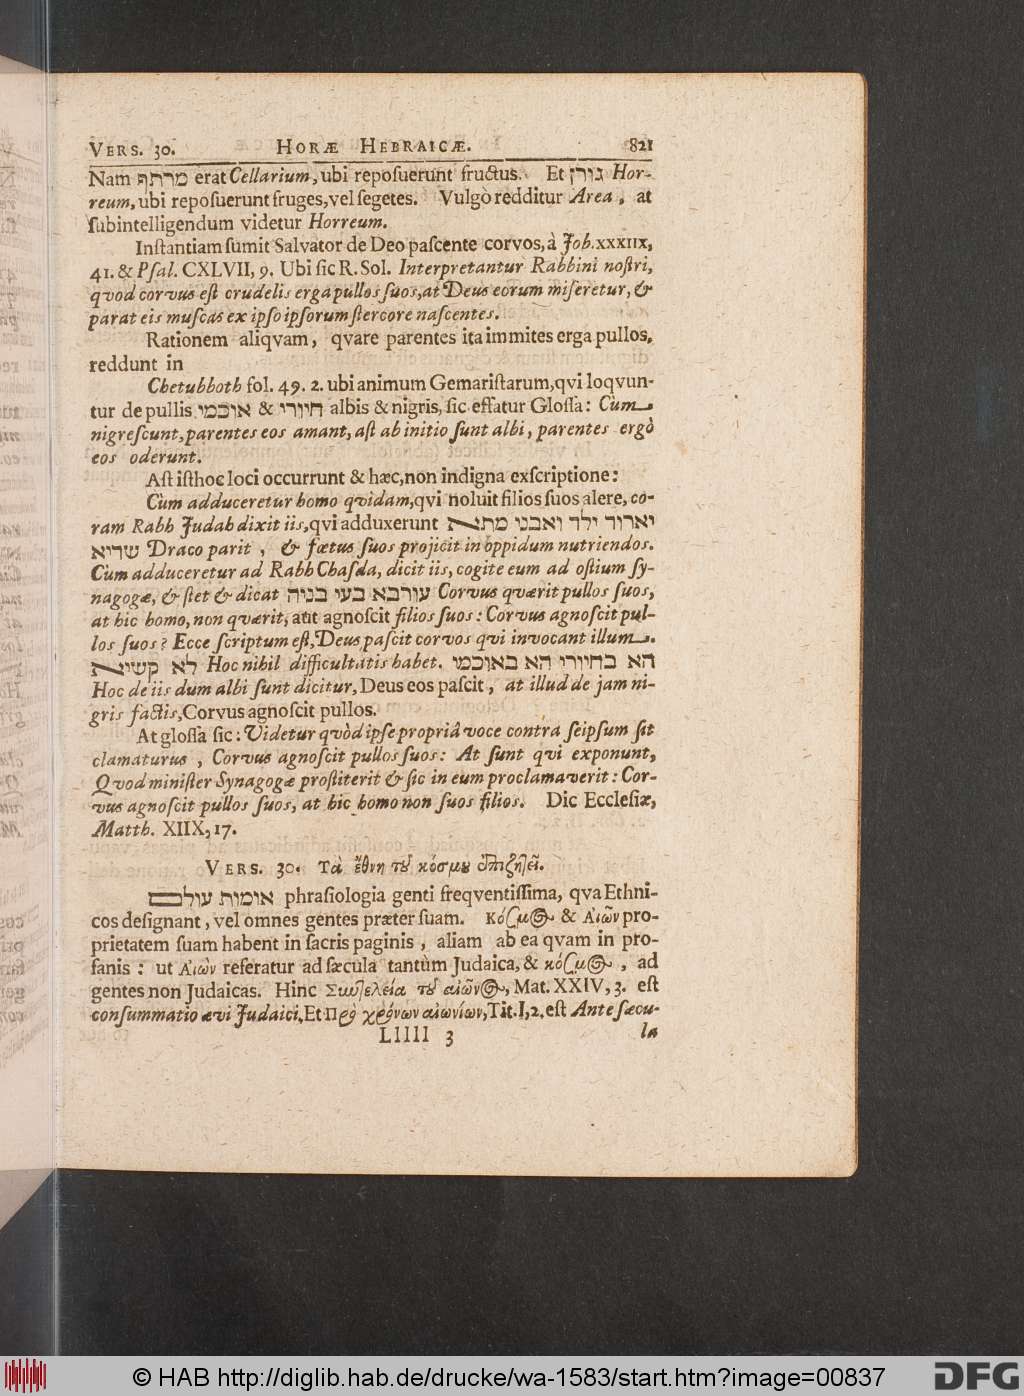 VERS. 30. HORÆ HEBRAICÆ. 821
Nam מרתף erat Cellarium, ubi reposuerunt fructus. Et גורן Hor-
reum, ubi reposuerunt fruges, vel segetes. Vulgò redditur Area, at
subintelligendum videtur Horreum.
Instantiam sumit Salvator de Deo pascente corvos, à Job. XXXIIX,
41. & Psal. CXLVII, 9. Ubi sic R. Sol. Interpretantur Rabbini nostri,
qvod corvus est crudelis erga pullos suos, at Deus eorum miseretur, &
parat eis muscas ex ipso ipsorum stercore nascentes.
Rationem aliqvam, qvare parentes ita immites erga pullos,
reddunt in
Chetubboth fol. 49. 2. ubi animum Gemaristarum, qvi loqvun-
tur de pullis אוכמי & חיורי albis & nigris, sic effatur Glossa: Cùm
nigrescunt, parentes eos amant, ast ab initio sunt albi, parentes ergò
eos oderunt.
Ast isthoc loci occurrunt & hæc, non indigna exscriptione:
Cùm adduceretur homo qvidam, qvi noluit filios suos alere, co-
ram Rabh Judah dixit iis, qvi adduxerunt יארוד ילד ואבני מתא
שדיא Draco parit, & fœtus suos projicit in oppidum nutriendos.
Cùm adduceretur ad Rabh Chasda, dicit iis, cogite eum ad ostium sy-
nagogæ, & stet & dicat עורבא בעי בניה Corvus qværit pullos suos,
at hic homo, non qværit, aut agnoscit filios suos: Corvus agnoscit pul-
los suos? Ecce scriptum est, Deus pascit corvos qvi invocant illum.
לא קשיא Hoc nihil difficultatis habet. הא בחיורי הא באוכמי
Hoc de iis dum albi sunt dicitur, Deus eos pascit, at illud de jam ni-
gris factis, Corvus agnoscit pullos.
At glossa sic: Videtur qvòd ipse propriâ voce contra seipsum sit
clamaturus, Corvus agnoscit pullos suos: At sunt qvi exponunt,
Qvod minister Synagogæ prostiterit & sic in eum proclamaverit: Cor-
vus agnoscit pullos suos, at hic homo non suos filios. Dic Ecclesiæ,
Matth. XIIX, 17.
VERS. 30. Τὰ ἔθνη τοῦ κόσμου ἐπιζητεῖ.
אומות עולם phrasiologia genti freqventissima, qva Ethni-
cos designant, vel omnes gentes præter suam. Κόσμος & Αἰῶν pro-
prietatem suam habent in sacris paginis, aliam ab ea qvam in pro-
fanis: ut Αἰὼν referatur ad sæcula tantùm Judaica, & κόσμος, ad
gentes non Judaicas. Hinc Συντελεία τοῦ αἰῶνος, Mat. XXIV, 3. est
consummatio ævi Judaici. Et Πρὸ χρόνων αἰωνίων, Tit. I, 2. est Ante sæcu-
Lllll 3 la
© HAB http://diglib.hab.de/drucke/wa-1583/start.htm?image=00837
DFG